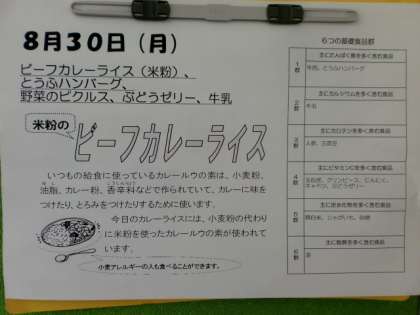 8月30日（月）
ビーフカレーライス（米粉）、
とうふハンバーグ、
野菜のピクルス、ぶどうゼリー、牛乳
米粉の
ビーフカレーライス
いつもの給食に使っているカレールウの素は、小麦粉、
油脂、カレー粉、香辛料などで作られていて、カレーに味を
つけたり、とろみをつけたりするために使います。
今日のカレーライスには、小麦粉の代わり
に米粉を使ったカレールウの素が使われて
います。
小麦アレルギーの人も食べることができます。
6つの基礎食品群
1群
主にたんぱく質を多く含む食品
牛肉、とうふハンバーグ
2群
主にカルシウムを多く含む食品
牛乳
3群
主にカロテンを多く含む食品
4群
主にビタミンCを多く含む食品
玉ねぎ、グリンピース、にんにく、
キャベツ、ぶどうゼリー
5群
主に炭水化物を多く含む食品
6群
主に脂質を多く含む食品
油